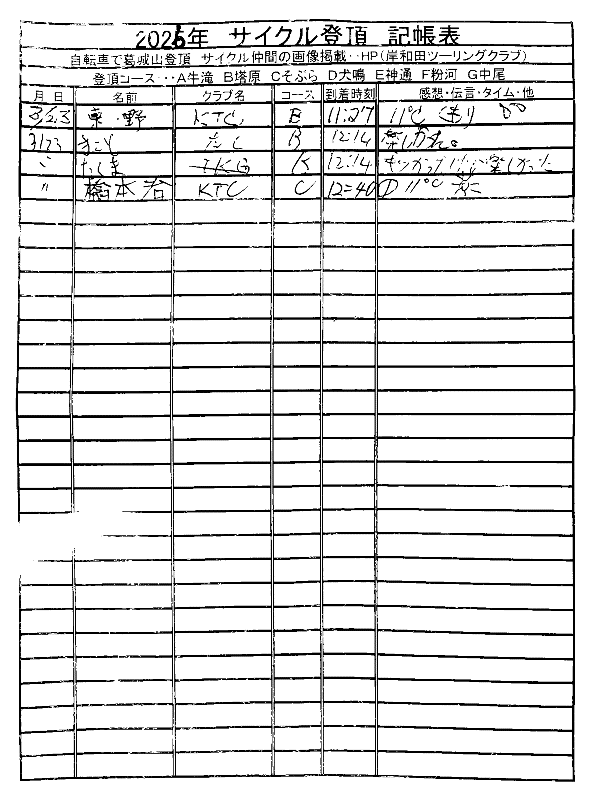 2026年 サイクル登頂 記帳表
自転車で葛城山登頂 サイクル仲間の画像掲載‥HP(岸和田ツーリングクラブ)
登頂コース‥A牛滝 B塔原 Cそぶら D犬鳴 E神通 F粉河 G中尾
月 日 名前 クラブ名 コース 到着時刻 感想・伝言・タイム・他
3/23 東野 KTC B 11:27 11℃ くもり
3/23 なし B 12:14
〃 たじま 12:14 楽しかった
〃 橋本治 KTC C 12:40 ① 11℃